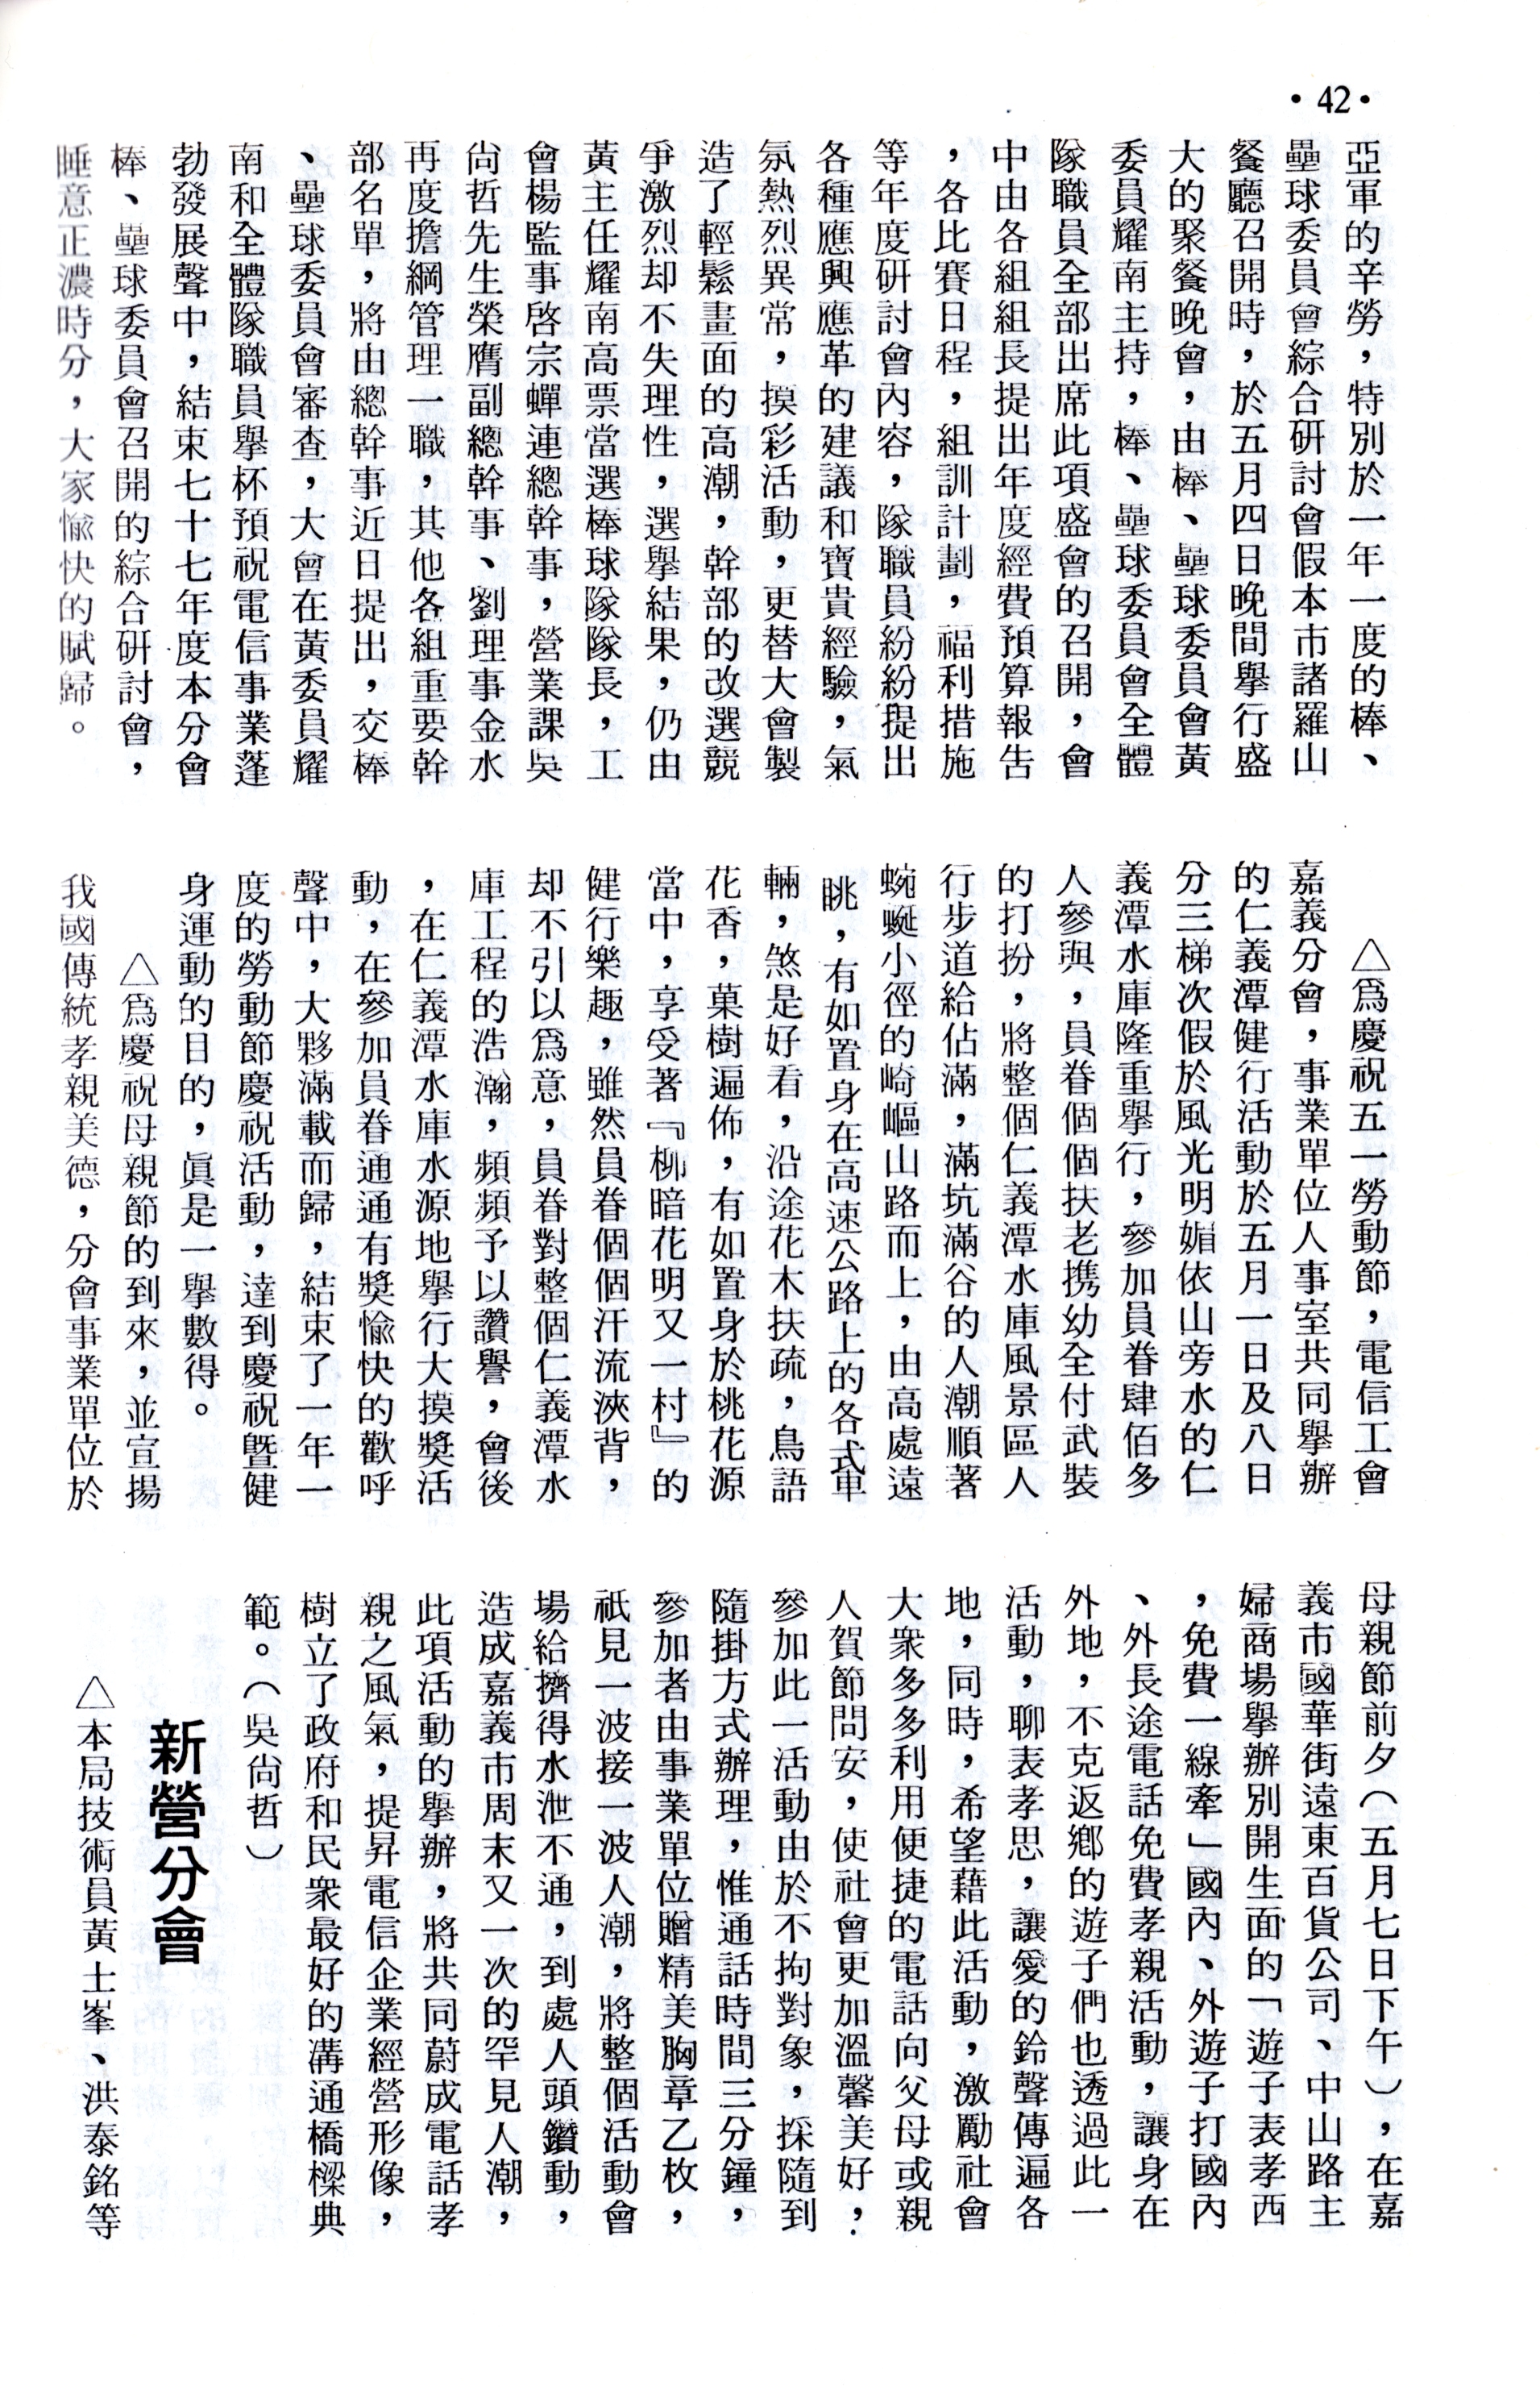 •42•
亞軍的辛勞，特別於一年一度的棒、
壘球委員會綜合研討會假本市諸羅山
餐廳召開時，於五月四日晚間舉行盛
大的聚餐晚會，由棒、壘球委員會黃
委員耀南主持，棒、壘球委員會全體
隊職員全部出席此項盛會的召開，會
中由各組組長提出年度經費預算報告
，各比賽日程，組訓計劃，福利措施
等年度研討會內容，隊職員紛紛提出
各種應興應革的建議和寶貴經驗，氣
氛熱烈異常，摸彩活動，更替大會製
造了輕鬆畫面的高潮，幹部的改選競
爭激烈却不失理性，選舉結果，仍由
黃主任耀南高票當選棒球隊隊長，工
會楊監事啓宗蟬連總幹事，營業課吳
尚哲先生榮膺副總幹事、劉理事金水
再度擔綱管理一職，其他各組重要幹
部名單，將由總幹事近日提出，交棒
、壘球委員會審查，大會在黃委員耀
南和全體隊職員舉杯預祝電信事業蓬
勃發展聲中，結束七十七年度本分會
棒、壘球委員會召開的綜合研討會，
睡意正濃時分，大家愉快的賦歸。
△爲慶祝五一勞動節，電信工會
嘉義分會，事業單位人事室共同舉辦
的仁義潭健行活動於五月一日及八日
分三梯次假於風光明媚依山旁水的仁
義潭水庫隆重舉行，參加員眷肆佰多
人參與，員眷個個扶老携幼全付武裝
的打扮，將整個仁義潭水庫風景區人
行步道給佔滿，滿坑滿谷的人潮順著
蜿蜒小徑的崎嶇山路而上，由高處遠
眺，有如置身在高速公路上的各式車
輛，煞是好看，沿途花木扶疏，鳥語
花香，菓樹遍佈，有如置身於桃花源
當中，享受著『柳暗花明又一村』的
健行樂趣，雖然員眷個個汗流浹背，
却不引以爲意，員眷對整個仁義潭水
庫工程的浩瀚，頻頻予以讚譽，會後
，在仁義潭水庫水源地舉行大摸獎活
動，在參加員眷通通有獎愉快的歡呼
聲中，大夥滿載而歸，結束了一年一
度的勞動節慶祝活動，達到慶祝暨健
身運動的目的，眞是一舉數得。
△爲慶祝母親節的到來，並宣揚
我國傳統孝親美德，分會事業單位於
母親節前夕（五月七日下午），在嘉
義市國華街遠東百貨公司、中山路主
婦商場舉辦別開生面的「遊子表孝西
，免費一線牽」國內、外遊子打國內
、外長途電話免費孝親活動，讓身在
外地，不克返鄉的遊子們也透過此一
活動，聊表孝思，讓愛的鈴聲傳遍各
地，同時，希望藉此活動，激勵社會
大衆多多利用便捷的電話向父母或親
人賀節問安，使社會更加溫馨美好，
參加此一活動由於不拘對象，採隨到
隨掛方式辦理，惟通話時間三分鐘，
參加者由事業單位贈精美胸章乙枚，
祇見一波接一波人潮，將整個活動會
場給擠得水泄不通，到處人頭鑽動，
造成嘉義市周末又一次的罕見人潮，
此項活動的舉辦，將共同蔚成電話孝
親之風氣，提昇電信企業經營形像，
樹立了政府和民衆最好的溝通橋樑典
範。（吳尚哲）
新營分會
△本局技術員黃士峯、洪泰銘等